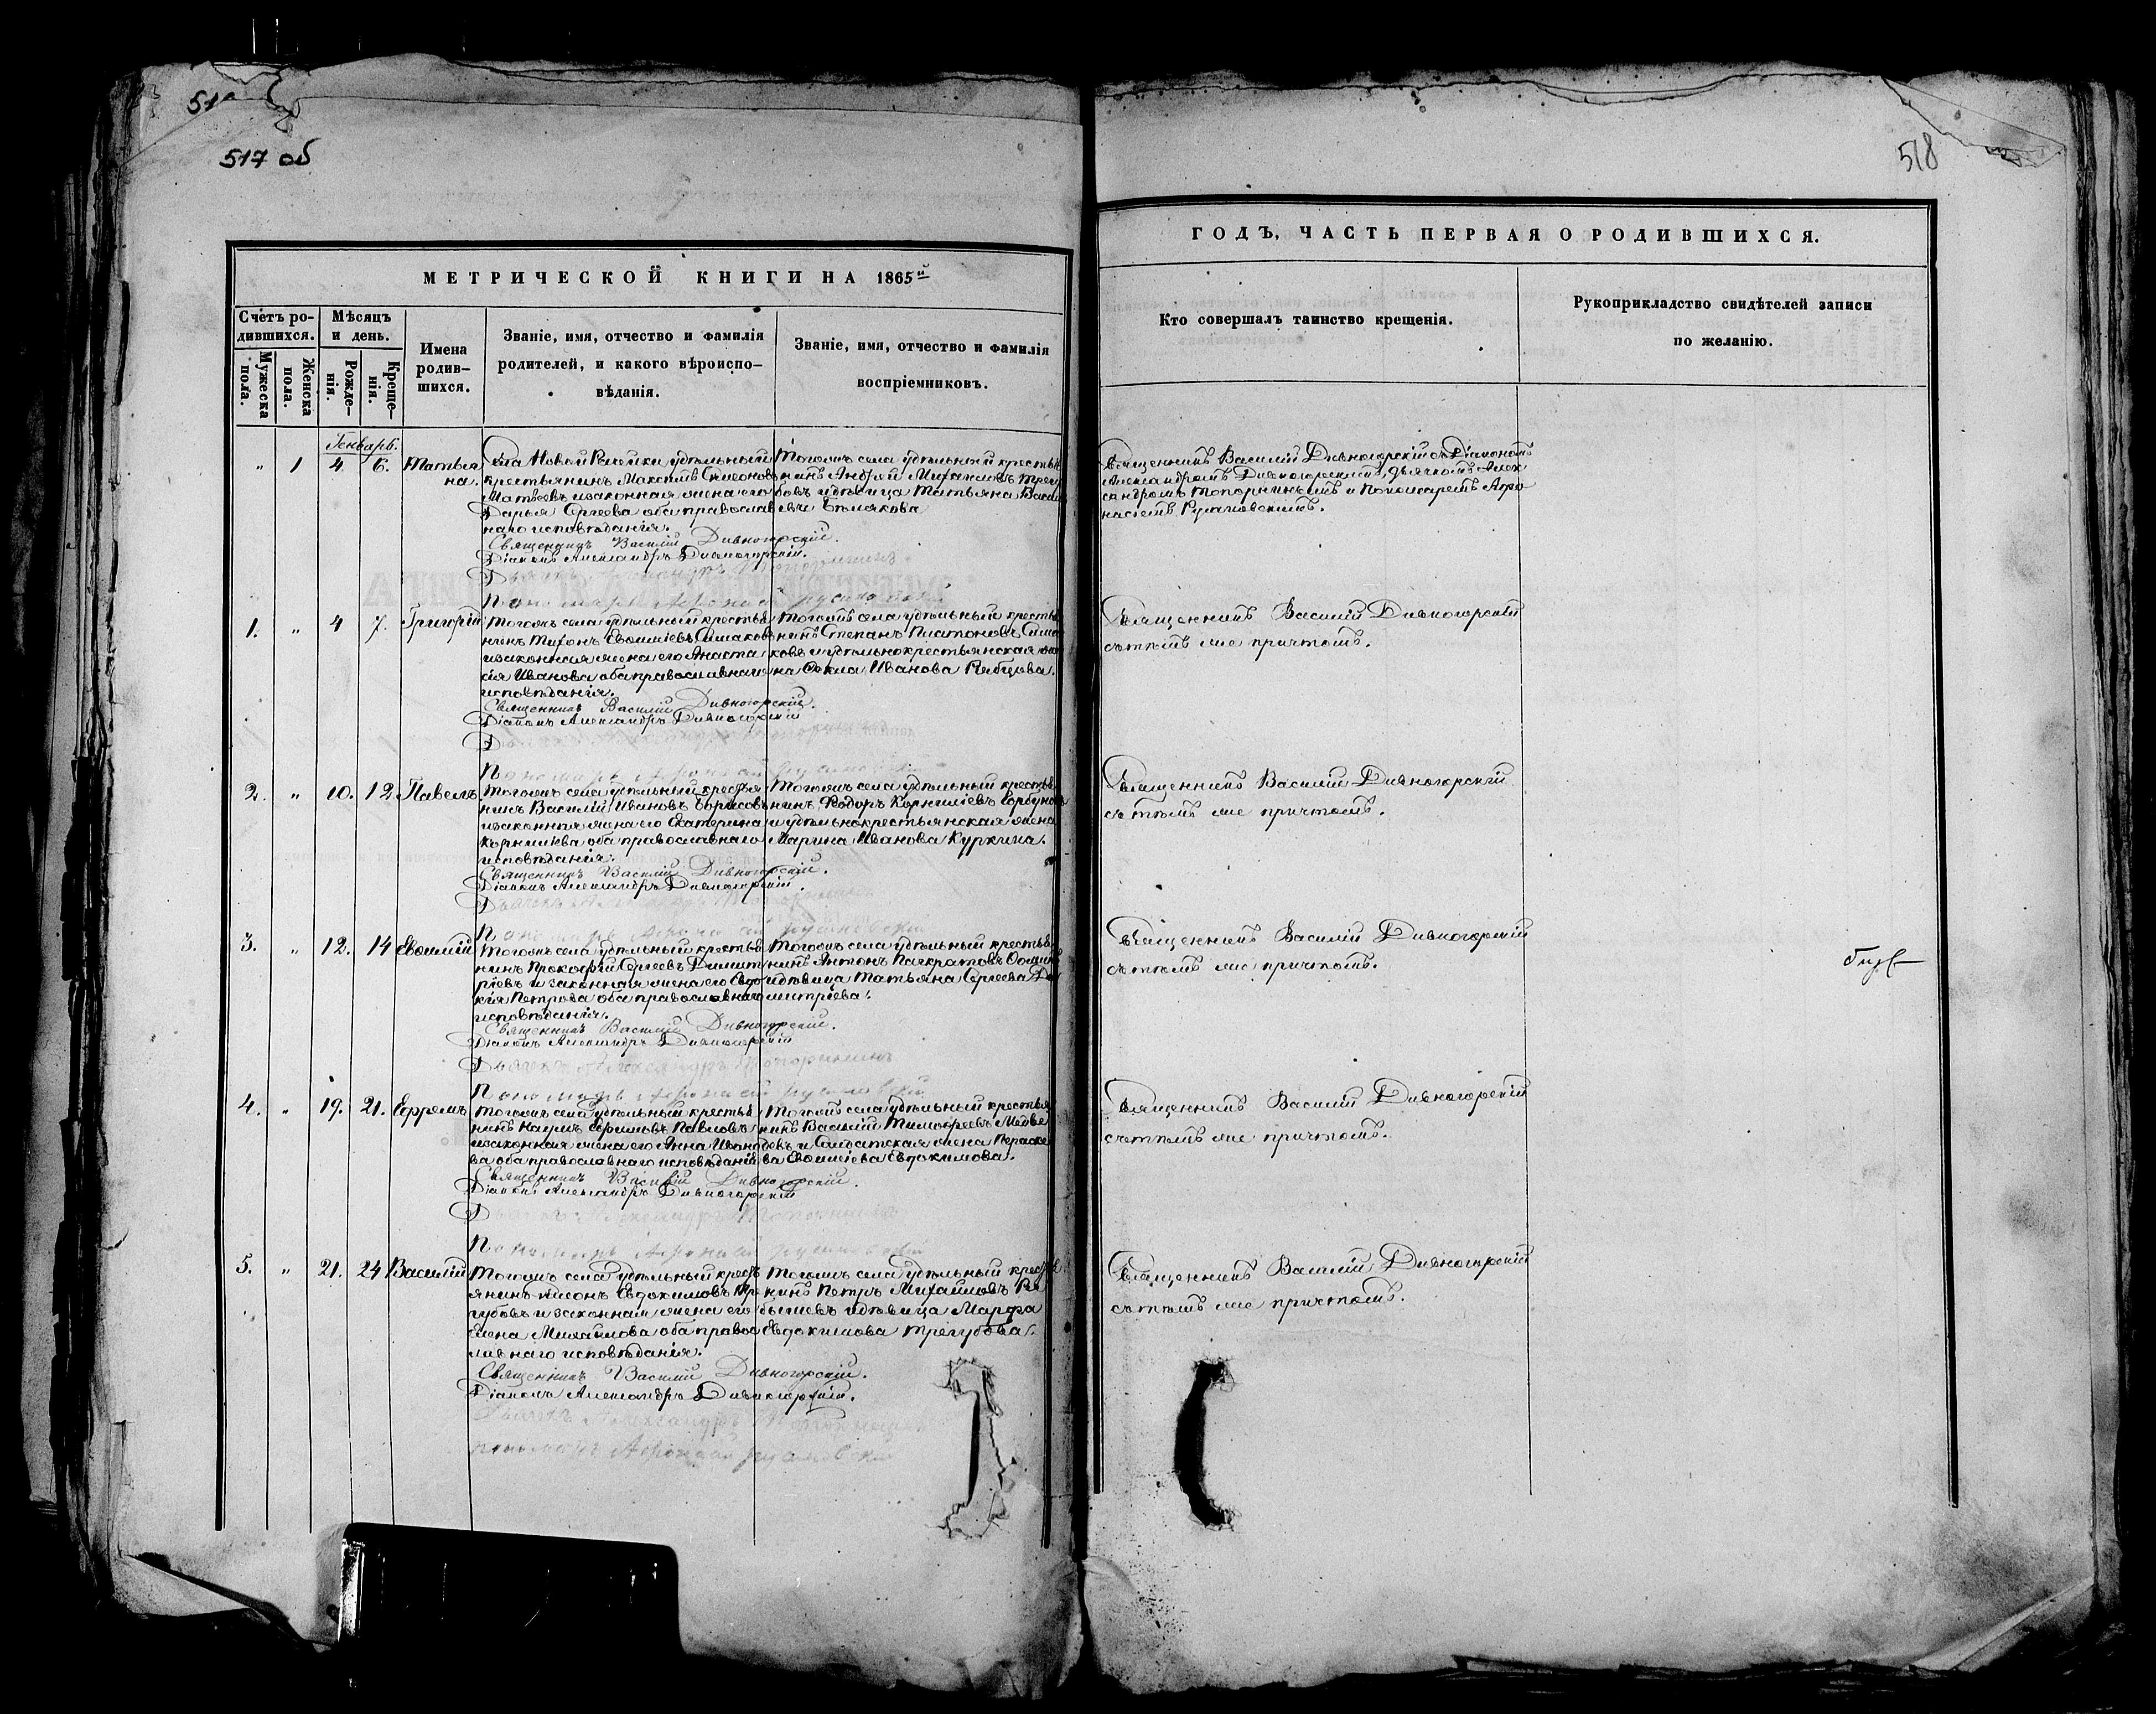 517 об
518
МЕТРИЧЕСКОЙ КНИГИ НА 1865й
ГОДЪ, ЧАСТЬ ПЕРВАЯ О РОДИВШИХСЯ.
Счетъ ро-
дившихся.
Мужеска
пола.
Женска
пола.
Мѣсяцъ
и день.
Рожде-
нія.
Креще-
нія.
Имена
родив-
шихся.
Званіе, имя, отчество и фамилія
родителей, и какого вѣроиспо-
вѣданія.
Званіе, имя, отчество и фамилія
воспріемниковъ.
Кто совершалъ таинство крещенія.
Рукоприкладство свидѣтелей записи
по желанію.
Генварь.
" 1 4 6. Татья
на.
Села Новой удѣльный
крестьянинъ Максимъ Симеоновъ
Матвѣевъ и законная жена его
Дарья Сергеева оба православ
наго исповѣданія.
Священникъ Василій Дивногорскій.
Діаконъ Александръ Дивногорскій.
Дьячекъ Александръ Топорнинъ
Пономарь
Тогожъ села удѣльный крестья
нинъ Андрей Михаиловъ Трегу
бовъ и дѣвица Татьяна Васи
ева Бѣлякова
Священникъ Василій Дивногорскій съ Діакономъ
Александромъ Дивногорскимъ, дьячкомъ Алек
сандромъ Топорнинымъ и Пономаремъ Афа
насіемъ
1. " 4 7. Григорій
Тогожъ села удѣльный крестья
нинъ Тихонъ Евфиміевъ Симаковъ
и законная жена его Анаста
сія Иванова оба православнаго
исповѣданія.
Священникъ Василій Дивногорскій.
Діаконъ Александръ Дивногорскій
Тогожъ села удѣльный крестья
нинъ Степанъ Платоновъ Сима
ковъ и удѣльнокрестьянская же
на Фекла Иванова Рябцова.
Священникъ Василій Дивногорскій
съ тѣмъ же причтомъ.
2. " 10. 12 Павелъ
Тогожъ села удѣльный крестья
нинъ Василій Ивановъ Борисовъ
и законная жена его Екатерина
Корнилиева оба православнаго
исповѣданія.
Священникъ Василій Дивногорскій.
Діаконъ Александръ Дивногорскій.
Дьячекъ Александръ
Пономарь
Тогожъ села удѣльный крестья
нинъ Ѳедоръ Корниліевъ Горбуновъ
и удѣльнокрестьянская жена
Марина Иванова Куркина.
Священникъ Василій Дивногорскій
съ тѣмъ же причтомъ.
3. " 12. 14 Евфимій
Тогожъ села удѣльный крестья
нинъ Прокофій Сергеевъ Димит
ріевъ и законная жена его Евдо
кія Петрова оба православнаго
исповѣданія.
Священникъ Василій Дивногорскій.
Діаконъ Александръ Дивногорскій
Дьячекъ Александръ Топорнинъ
Пономарь
Тогожъ села удѣльный крестья
нинъ Антонъ Панкратовъ
и дѣвица Татьяна Сергеева Ди
митріева.
Священникъ Василій Дивногорскій
съ тѣмъ же причтомъ.
4. " 19. 21. Ефремъ
Тогожъ села удѣльный крестья
нинъ Наумъ Ефимовъ Павловъ
и законная жена его Анна Ивано
ва оба православнаго исповѣданія
Священникъ Василій Дивногорскій.
Діаконъ Александръ Дивногорскій
Дьячекъ Александръ Топорнинъ
Пономарь
Тогожъ села удѣльный крестья
нинъ Василій Тимофеевъ Медвѣ
девъ и Солдатская жена Параске
ва Евфиміева Евдокимова.
Священникъ Василій Дивногорскій
съ тѣмъ же причтомъ.
5. " 21. 24 Василій
Тогожъ села удѣльный кресть
янинъ Евдокимовъ Тре
губовъ и законная жена его
Елена Михайлова оба правос
лавнаго исповѣданія.
Священникъ Василій Дивногорскій.
Діаконъ Александръ Дивногорскій.
Дьячекъ Александръ Топорнинъ
пономарь
Тогожъ села удѣльный крестья
нинъ Петръ Михайловъ
и дѣвица Марфа
Евдокимова Трегубова.
Священникъ Василій Дивногорскій
съ тѣмъ же причтомъ.